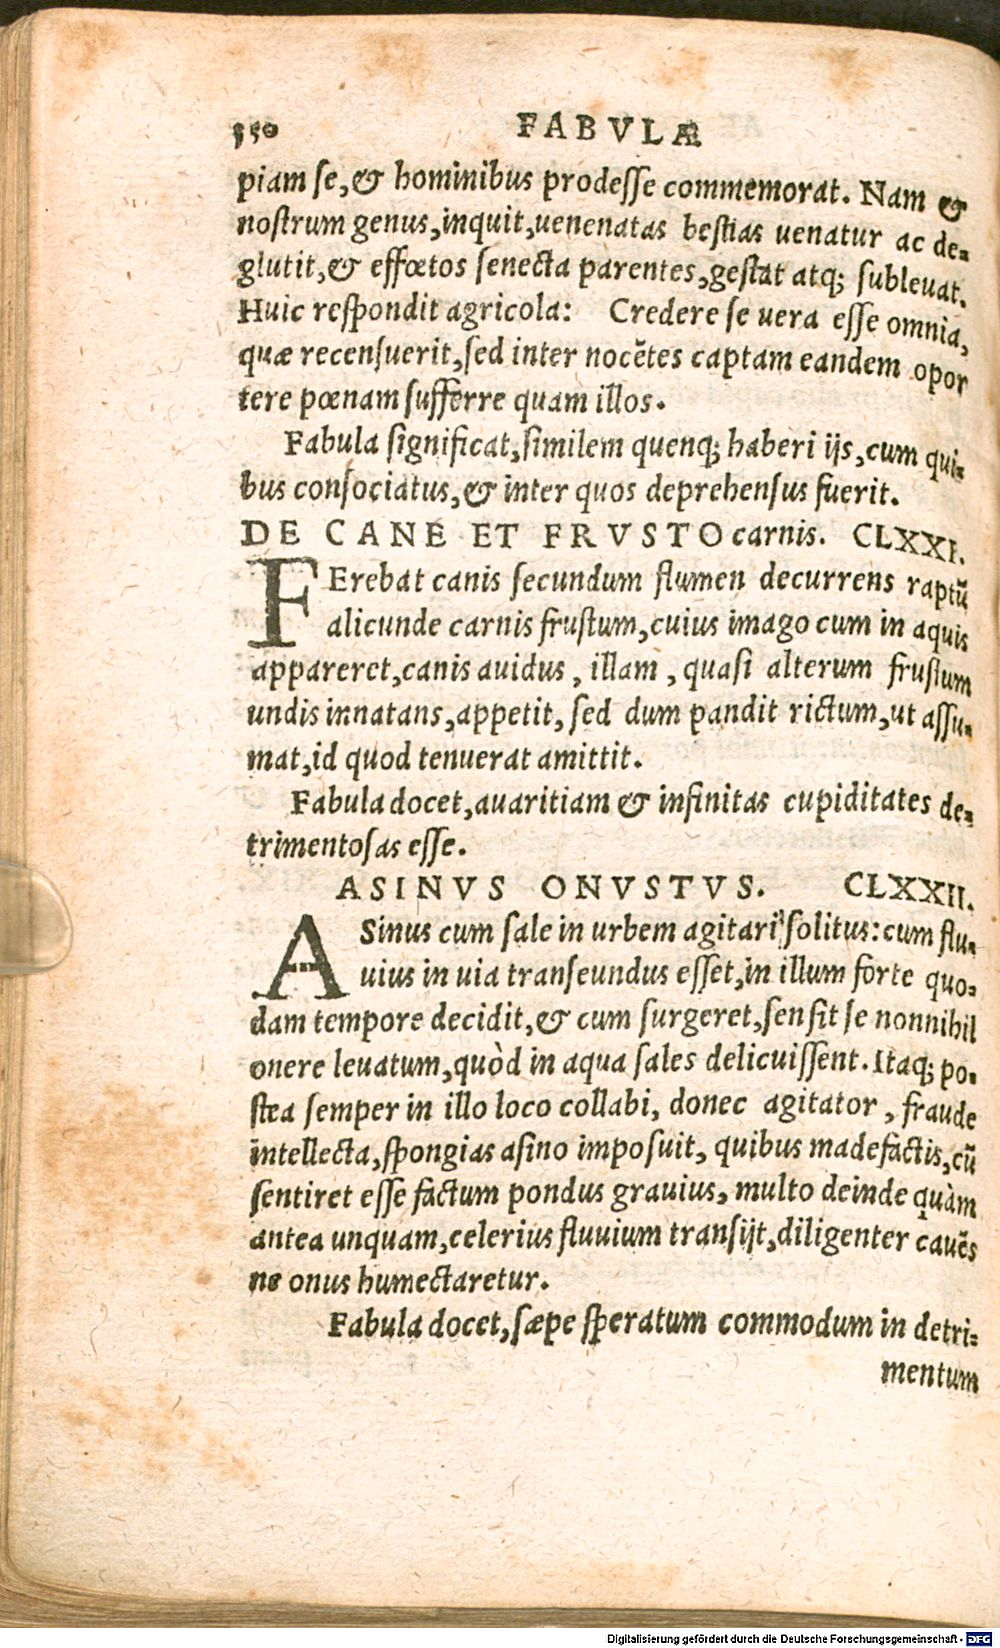 350 FABVLÆ
piam se, & hominibus prodesse commemorat. Nam &
nostrum genus, inquit, uenenatas bestias uenatur ac de-
glutit, & effœtos senecta parentes, gestat atq; subleuat.
Huic respondit agricola: Credere se uera esse omnia,
quæ recensuerit, sed inter nocẽtes captam eandem opor
tere pœnam sufferre quam illos.
Fabula significat, similem quenq; haberi ijs, cum qui-
bus consociatus, & inter quos deprehensus fuerit.
DE CANE ET FRVSTO carnis. CLXXI.
FErebat canis secundum flumen decurrens raptũ
alicunde carnis frustum, cuius imago cum in aquis
appareret, canis auidus, illam, quasi alterum frustum
undis innatans, appetit, sed dum pandit rictum, ut assu-
mat, id quod tenuerat amittit.
Fabula docet, auaritiam & infinitas cupiditates de-
trimentosas esse.
ASINVS ONVSTVS. CLXXII.
ASinus cum sale in urbem agitari solitus: cum flu-
uius in uia transeundus esset, in illum forte quo-
dam tempore decidit, & cum surgeret, sensit se nonnihil
onere leuatum, quòd in aqua sales delicuissent. Itaq; po-
stea semper in illo loco collabi, donec agitator, fraude
intellecta, spongias asino imposuit, quibus madefactis, cũ
sentiret esse factum pondus grauius, multo deinde quàm
antea unquam, celerius fluuium transijt, diligenter cauẽs
ne onus humectaretur.
Fabula docet, sæpe speratum commodum in detri-
mentum
Digitalisierung gefördert durch die Deutsche Forschungsgemeinschaft - DFG